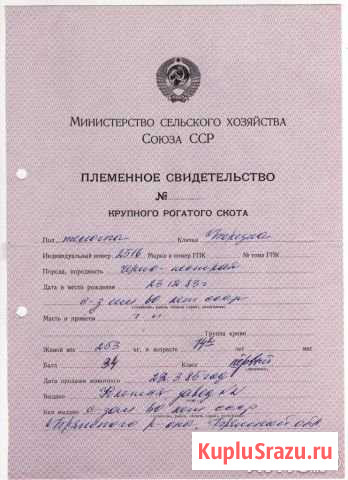 Министерство сельского хозяйства
Союза ССР
ПЛЕМЕННОЕ СВИДЕТЕЛЬСТВО
№
КРУПНОГО РОГАТОГО СКОТА
Пол Кличка
Индивидуальный номер 2516 Марка и номер ГПК № тома ГПК
Порода, породность черно-пестрая
Дата и место рождения 23 12 83г
с-з им 60 лет ссср
Масть и приметы
Группа крови
Живой вес 253 кг, в возрасте лет мес.
Балл 34 Класс первый
Дата продажи животного 22.3.85 год
Выдано
Кому выдано с-зом 60 лет ссср
Брянского р-она, Брянской обл
KupluSrazu.ru